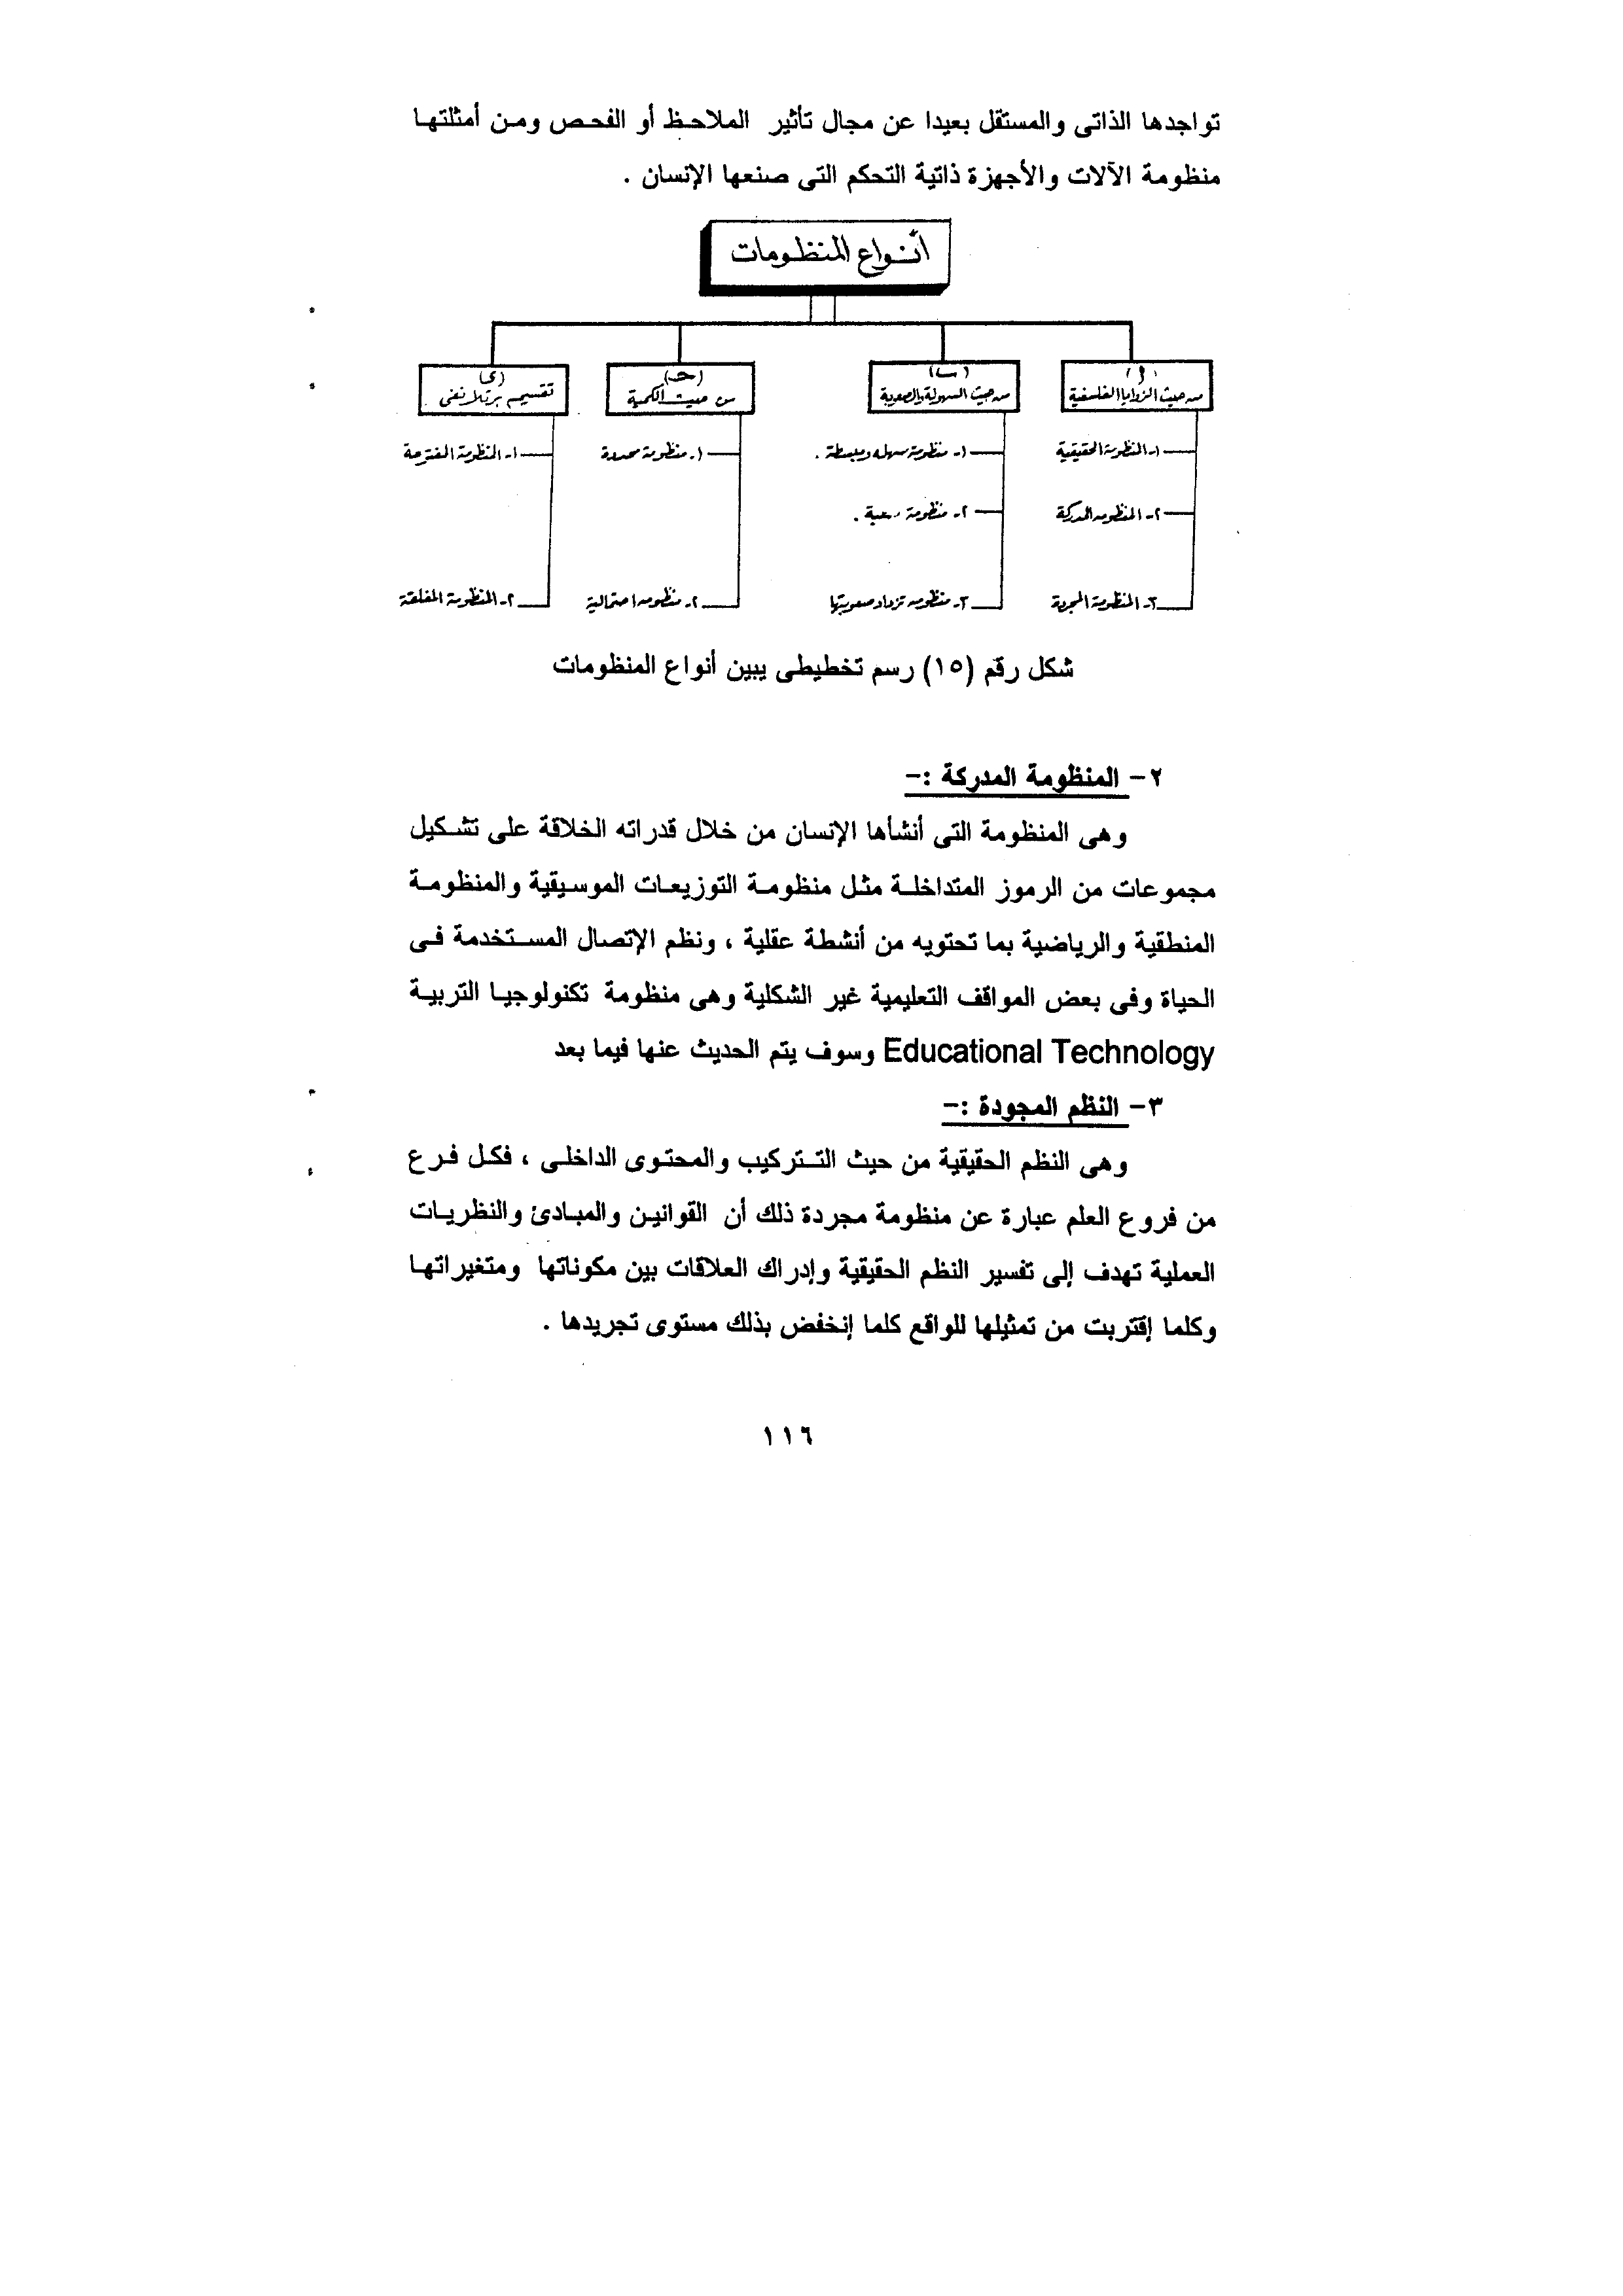 تواجدها الذاتى والمستقل بعيدا عن مجال تأثير الملاحظ أو الفحص ومن أمثلتها
منظومة الآلات والأجهزة ذاتية التحكم التى صنعها الإنسان .
أنواع المنظومات
(أ)
من حيث الزوايا الفلسفية
١- المنظومة الحقيقية
٢- المنظومه المدركة
٣- المنظومة المجردة
(ب)
من حيث السهولة والصعوبة
١- منظومة سهله ومبسطة .
٢- منظومة صعبة .
٣- منظومه تزداد صعوبتها
(حـ)
من حيث الكمية
١- منظومة محددة
٢- منظومه احتمالية
(ى)
تقسيم برتلانفى
١- المنظومة المفترحة
٢- المنظومة المغلقة
شكل رقم (١٥) رسم تخطيطى يبين أنواع المنظومات
٢- المنظومة المدركة :-
وهى المنظومة التى أنشأها الإنسان من خلال قدراته الخلاقة على تشكيل
مجموعات من الرموز المتداخلة مثل منظومة التوزيعات الموسيقية والمنظومة
المنطقية والرياضية بما تحتويه من أنشطة عقلية ، ونظم الإتصال المستخدمة فى
الحياة وفى بعض المواقف التعليمية غير الشكلية وهى منظومة تكنولوجيا التربية
Educational Technology وسوف يتم الحديث عنها فيما بعد
٣- النظم المجودة :-
وهى النظم الحقيقية من حيث التركيب والمحتوى الداخلى ، فكل فرع
من فروع العلم عبارة عن منظومة مجردة ذلك أن القوانين والمبادئ والنظريات
العملية تهدف إلى تفسير النظم الحقيقية وإدراك العلاقات بين مكوناتها ومتغيراتها
وكلما إقتربت من تمثيلها للواقع كلما إنخفض بذلك مستوى تجريدها .
١١٦